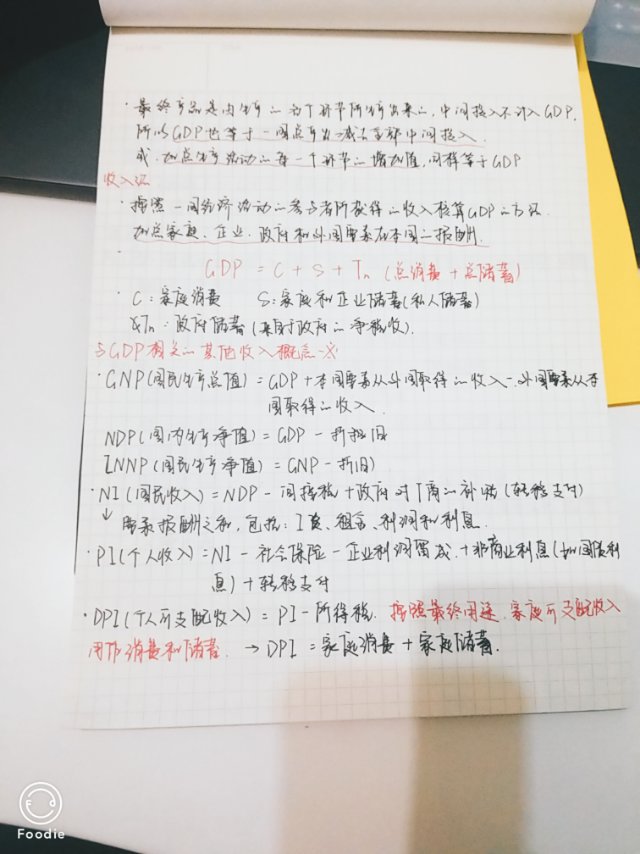 ·最终产品是由生产的各个环节所生产出来的,中间投入不计入GDP,
所以GDP也等于一国总产出减去全部中间投入.
或.加总生产活动的每一个环节的增加值,同样等于GDP
收入法
·按照一国经济活动的参与者所获得的收入核算GDP的方法.
加总家庭、企业、政府和外国要素在本国的报酬.
GDP = C + S + Tn (总消费 + 总储蓄)
·C:家庭消费 S:家庭和企业储蓄(私人储蓄)
&Tn:政府储蓄(来自对政府的净税收).
与GDP相关的其他收入概念
·GNP(国民生产总值) = GDP + 本国要素从外国取得的收入 - 外国要素从本
国取得的收入.
NDP(国内生产净值) = GDP - 折旧
[NNP(国民生产净值) = GNP - 折旧)
·NI(国民收入) = NDP - 间接税 + 政府对厂商的补贴(转移支付)
↓ 要素报酬之和,包括:工资、租金、利润和利息.
·PI(个人收入) = NI - 社会保险 - 企业利润留成 + 非商业利息(如国债利
息) + 转移支付
·DPI(个人可支配收入) = PI - 所得税. 按照最终用途,家庭可支配收入
用作消费和储蓄. → DPI = 家庭消费 + 家庭储蓄.
Foodie